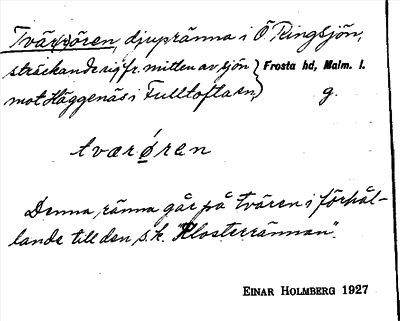 Tvärören, djupränna i Ö Ringsjön,
sträckande sig fr. mitten av sjön
mot Häggenäs i Fulltofta sn,
Frosta hd, Malm. l.
g.
tværøren
Denna ränna går på tvären i förhål-
lande till den s.k. "Klosterrännan".
EINAR HOLMBERG 1927